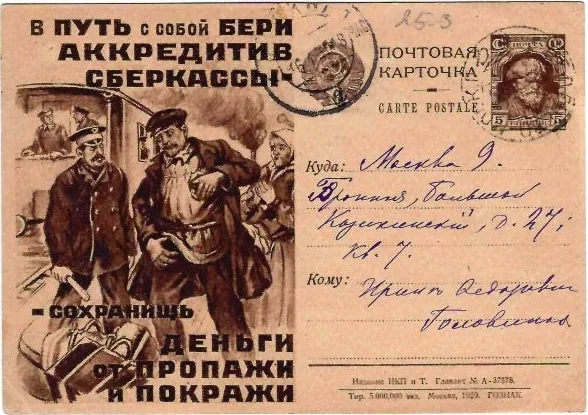 В ПУТЬ С СОБОЙ БЕРИ
АККРЕДИТИВ
СБЕРКАССЫ-
-СОХРАНИШЬ
ДЕНЬГИ
ОТ ПРОПАЖИ
И ПОКРАЖИ
25-3
ПОЧТОВАЯ
КАРТОЧКА
CARTE POSTALE
5 5
Куда: Москва 9.
Бронная, Большой
Козихинский, д. 27,
кв. 7.
Кому: Ирине Федоровне
Головкиной
Издание НКП и Т. Главлит № А-37576.
Тир. 5.000,000 экз. Москва, 1929. ГОЗНАК.